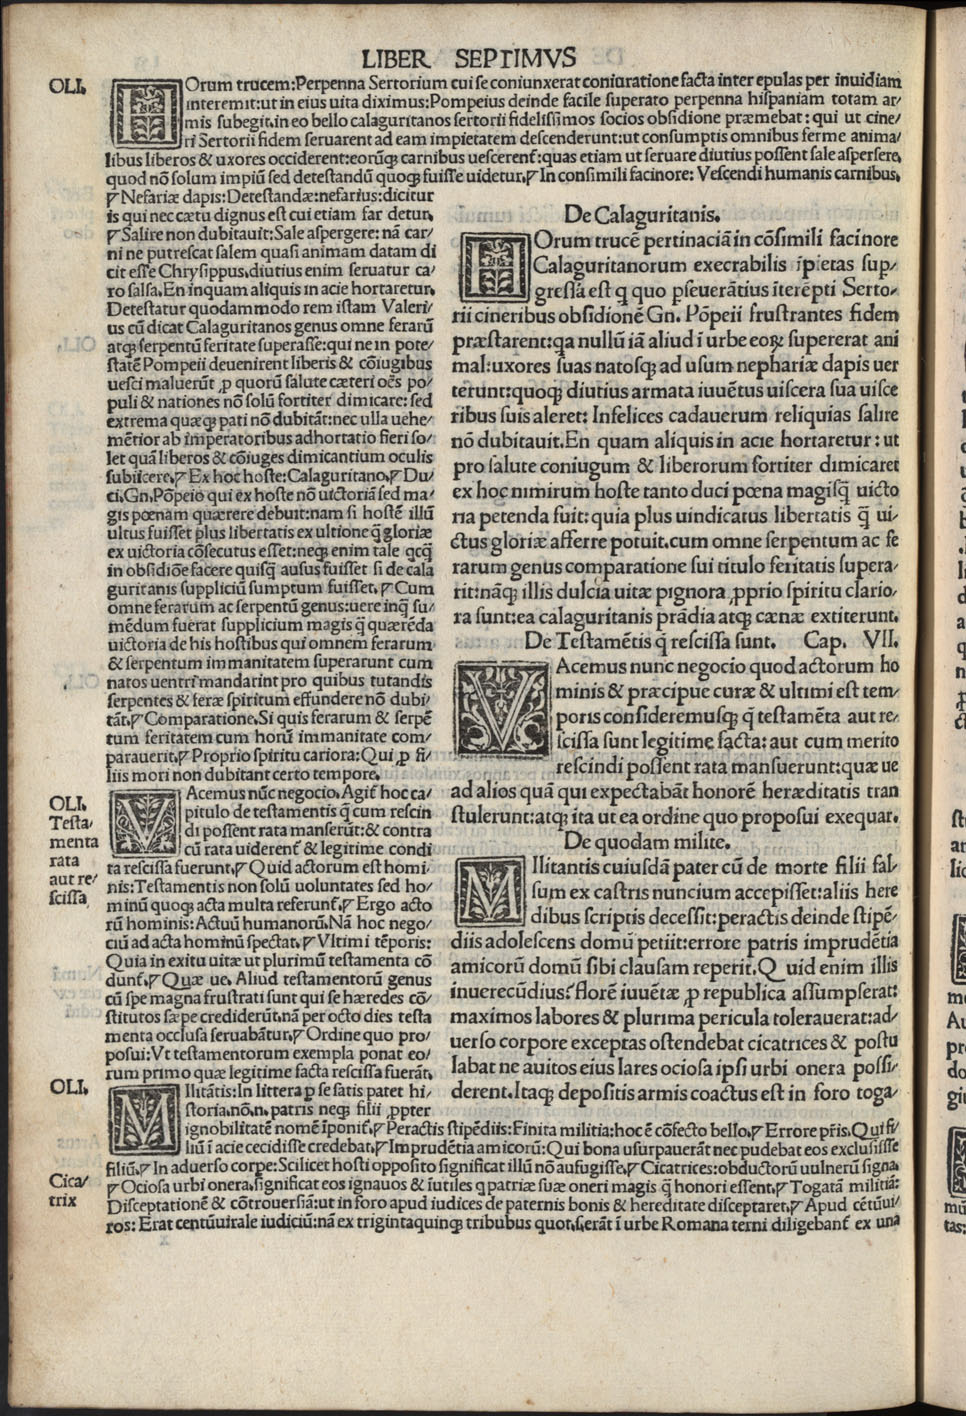 LIBER SEPTIMVS
OLI.
HOrum trucem:Perpenna Sertorium cui se coniunxerat coniuratione facta inter epulas per inuidiam
interemit:ut in eius uita diximus:Pompeius deinde facile superato perpenna hispaniam totam ar/
mis subegit.in eo bello calaguritanos sertorii fidelissimos socios obsidione præmebat: qui ut cine/
ri Sertorii fidem seruarent ad eam impietatem descenderunt:ut consumptis omnibus ferme anima/
libus liberos & uxores occiderent:eorūq; carnibus uescerent̄:quas etiam ut seruare diutius possent sale aspersere.
quod nō solum impiū sed detestandū quoq; fuisse uidetur.☞In consimili facinore: Vescendi humanis carnibus.
☞Nefariæ dapis:Detestandæ:nefarius:dicitur
is qui nec cætu dignus est cui etiam far detur.
☞Salire non dubitauit:Sale aspergere: nā car/
ni ne putrescat salem quasi animam datam di
cit esse Chrysippus.diutius enim seruatur ca/
ro salsa.En inquam aliquis in acie hortaretur.
Detestatur quodammodo rem istam Valeri/
us cū dicat Calaguritanos genus omne ferarū
atq; serpentū feritate superasse:qui ne in pote/
statē Pompeii deuenirent liberis & cōiugibus
uesci maluerūt ꝓ quorū salute cæteri oēs po/
puli & nationes nō solū fortiter dimicare: sed
extrema quæq; pati nō dubitāt:nec ulla uehe/
mētior ab imperatoribus adhortatio fieri so/
let quā liberos & cōiuges dimicantium oculis
subiicere.☞Ex hoc hoste:Calaguritano.☞Du/
ci.Gn.Pōpeio qui ex hoste nō uictoriā sed ma/
gis pœnam quærere debuit:nam si hostē illū
ultus fuisset plus libertatis ex ultione q̄ gloriæ
ex uictoria cōsecutus esset:neq; enim tale qcq̄
in obsidiōe facere quisq̄ ausus fuisset si de cala
guritanis suppliciū sumptum fuisset.☞Cum
omne ferarum ac serpentū genus:uere inq̄ su/
mēdum fuerat supplicium magis q̄ quærēda
uictoria de his hostibus qui omnem ferarum
& serpentum immanitatem superarunt cum
natos uentri mandarint pro quibus tutandis
serpentes & feræ spiritum effundere nō dubi/
tāt.☞Comparatione.Si quis ferarum & serpē
tum feritatem cum horū immanitate com/
parauerit.☞Proprio spiritu cariora:Qui ꝓ fi/
liis mori non dubitant certo tempore.
De Calaguritanis.
HOrum trucē pertinaciā in cōsimili facinore
Calaguritanorum execrabilis īpietas sup/
gressa est q quo pseuerātius īterēpti Serto/
rii cineribus obsidionē Gn. Pōpeii frustrantes fidem
præstarent:qa nullū iā aliud ī urbe eoꝝ supererat ani
mal:uxores suas natosq; ad usum nephariæ dapis uer
terunt:quoq; diutius armata iuuētus uiscera sua uisce
ribus suis aleret: Infelices cadauerum reliquias salire
nō dubitauit.En quam aliquis in acie hortaretur: ut
pro salute coniugum & liberorum fortiter dimicaret
ex hoc nimirum hoste tanto duci pœna magisq̄ uicto
ria petenda fuit: quia plus uindicatus libertatis q̄ ui/
ctus gloriæ afferre potuit.cum omne serpentum ac fe
rarum genus comparatione sui titulo feritatis supera/
rit:nāq; illis dulcia uitæ pignora ꝓprio spiritu clario/
ra sunt:ea calaguritanis prādia atq; cænæ extiterunt.
De Testamētis q̄ rescissa sunt. Cap. VII.
VAcemus nunc negocio quod actorum ho
minis & præcipue curæ & ultimi est tem/
poris consideremusq; q̄ testamēta aut re/
scissa sunt legitime facta: aut cum merito
rescindi possent rata mansuerunt:quæ ue
ad alios quā qui expectabāt honorē heræditatis tran
stulerunt:atq; ita ut ea ordine quo proposui exequar.
De quodam milite.
MIllitantis cuiusdā pater cū de morte filii fal/
sum ex castris nuncium accepisset:aliis here
dibus scriptis decessit:peractis deinde stipē/
diis adolescens domū petiit:errore patris imprudētia
amicorū domū sibi clausam reperit.Quid enim illis
inuerecūdius? florē iuuētæ ꝓ republica assumpserat:
maximos labores & plurima pericula tolerauerat:ad/
uerso corpore exceptas ostendebat cicatrices & postu
labat ne auitos eius lares ociosa ipsi urbi onera possi/
derent.Itaq; depositis armis coactus est in foro toga/
OLI.
Testa/
menta
rata
aut re/
scissa
VAcemus nūc negocio.Agit̄ hoc ca/
pitulo de testamentis q̄ cum rescin
di possent rata manserūt:& contra
cū rata uiderent̄ & legitime condi
ta rescissa fuerunt.☞Quid actorum est homi/
nis:Testamentis non solū uoluntates sed ho/
minū quoq; acta multa referunt̄.☞Ergo acto
rū hominis: Actuū humanorū.Nā hoc nego/
ciū ad acta hominū spectat.☞Vltimi tēporis:
Quia in exitu uitæ ut plurimū testamenta cō
dunt̄.☞Quæ ue. Aliud testamentorū genus
cū spe magna frustrati sunt qui se hæredes cō/
stitutos sæpe crediderūt.nā per octo dies testa
menta occlusa seruabātur.☞Ordine quo pro/
posui:Vt testamentorum exempla ponat eo/
rum primo quæ legitime facta rescissa fuerāt.
OLI.
MIllitātis:In littera p se satis patet hi/
storia.nō.n. patris neq; filii ꝓpter
ignobilitatē nomē īponit̄.☞Peractis stipēdiis:Finita militia:hoc ē cōfecto bello.☞Errore pr̄is.Qui fi/
liū ī acie cecidisse credebat.☞Imprudētia amicorū:Qui bona usurpauerāt nec pudebat eos exclusisse
filiū.☞In aduerso corpe:Scilicet hosti opposito significat illū nō aufugisse.☞Cicatrices:obductorū uulnerū signa.
Cica/
trix
☞Ociosa urbi onera.significat eos ignauos & īutiles q patriæ suæ oneri magis q̄ honori essent.☞Togatā militiā:
Disceptationē & cōtrouersiā:ut in foro apud iudices de paternis bonis & hereditate disceptaret.☞Apud cētūui/
ros: Erat centūuirale iudiciū:nā ex trigintaquinq; tribubus quot.s.erāt ī urbe Romana terni diligebant̄ ex una